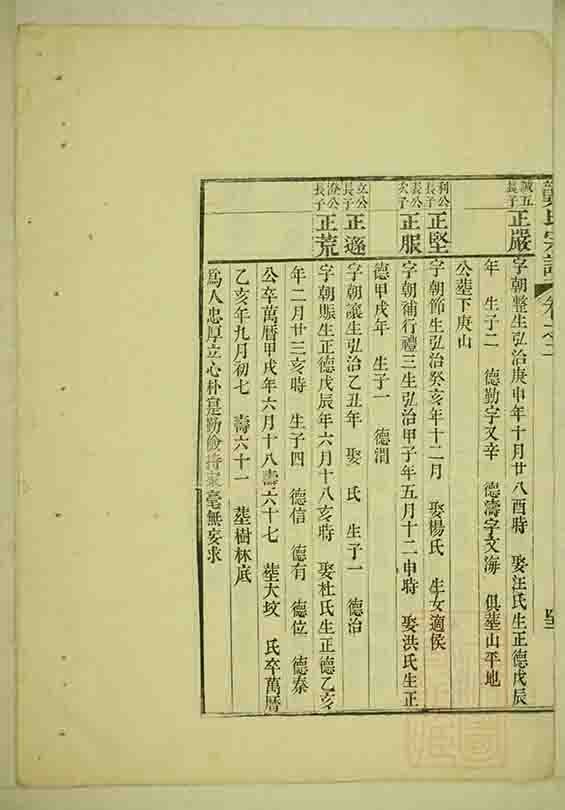 氏宗譜 卷之二
誠五長子
正嚴
字朝整生弘治庚申年十月廿八酉時 娶汪氏生正德戊辰
年 生子二 德勤字又辛 德濤字文海 俱塟山平地
公塟下庚山
利公長子
正堅
字朝節生弘治癸亥年十二月 娶楊氏 生女適侯
表公次子
正服
字朝補行禮三生弘治甲子年五月十二申時 娶洪氏生正
德甲戌年 生子一 德潤
立公長子
正遜
字朝讓生弘治乙丑年 娶 氏 生子一 德治
澄公長子
正荒
字朝賑生正德戊辰年六月十八亥時 娶杜氏生正德乙亥
年二月廿三亥時 生子四 德信 德有 德位 德秦
公卒萬曆甲戌年六月十八壽六十七 塟大坟 氏卒萬曆
乙亥年九月初七 壽六十一 塟樹林底
爲人忠厚立心朴寔勤儉持家毫無妄求